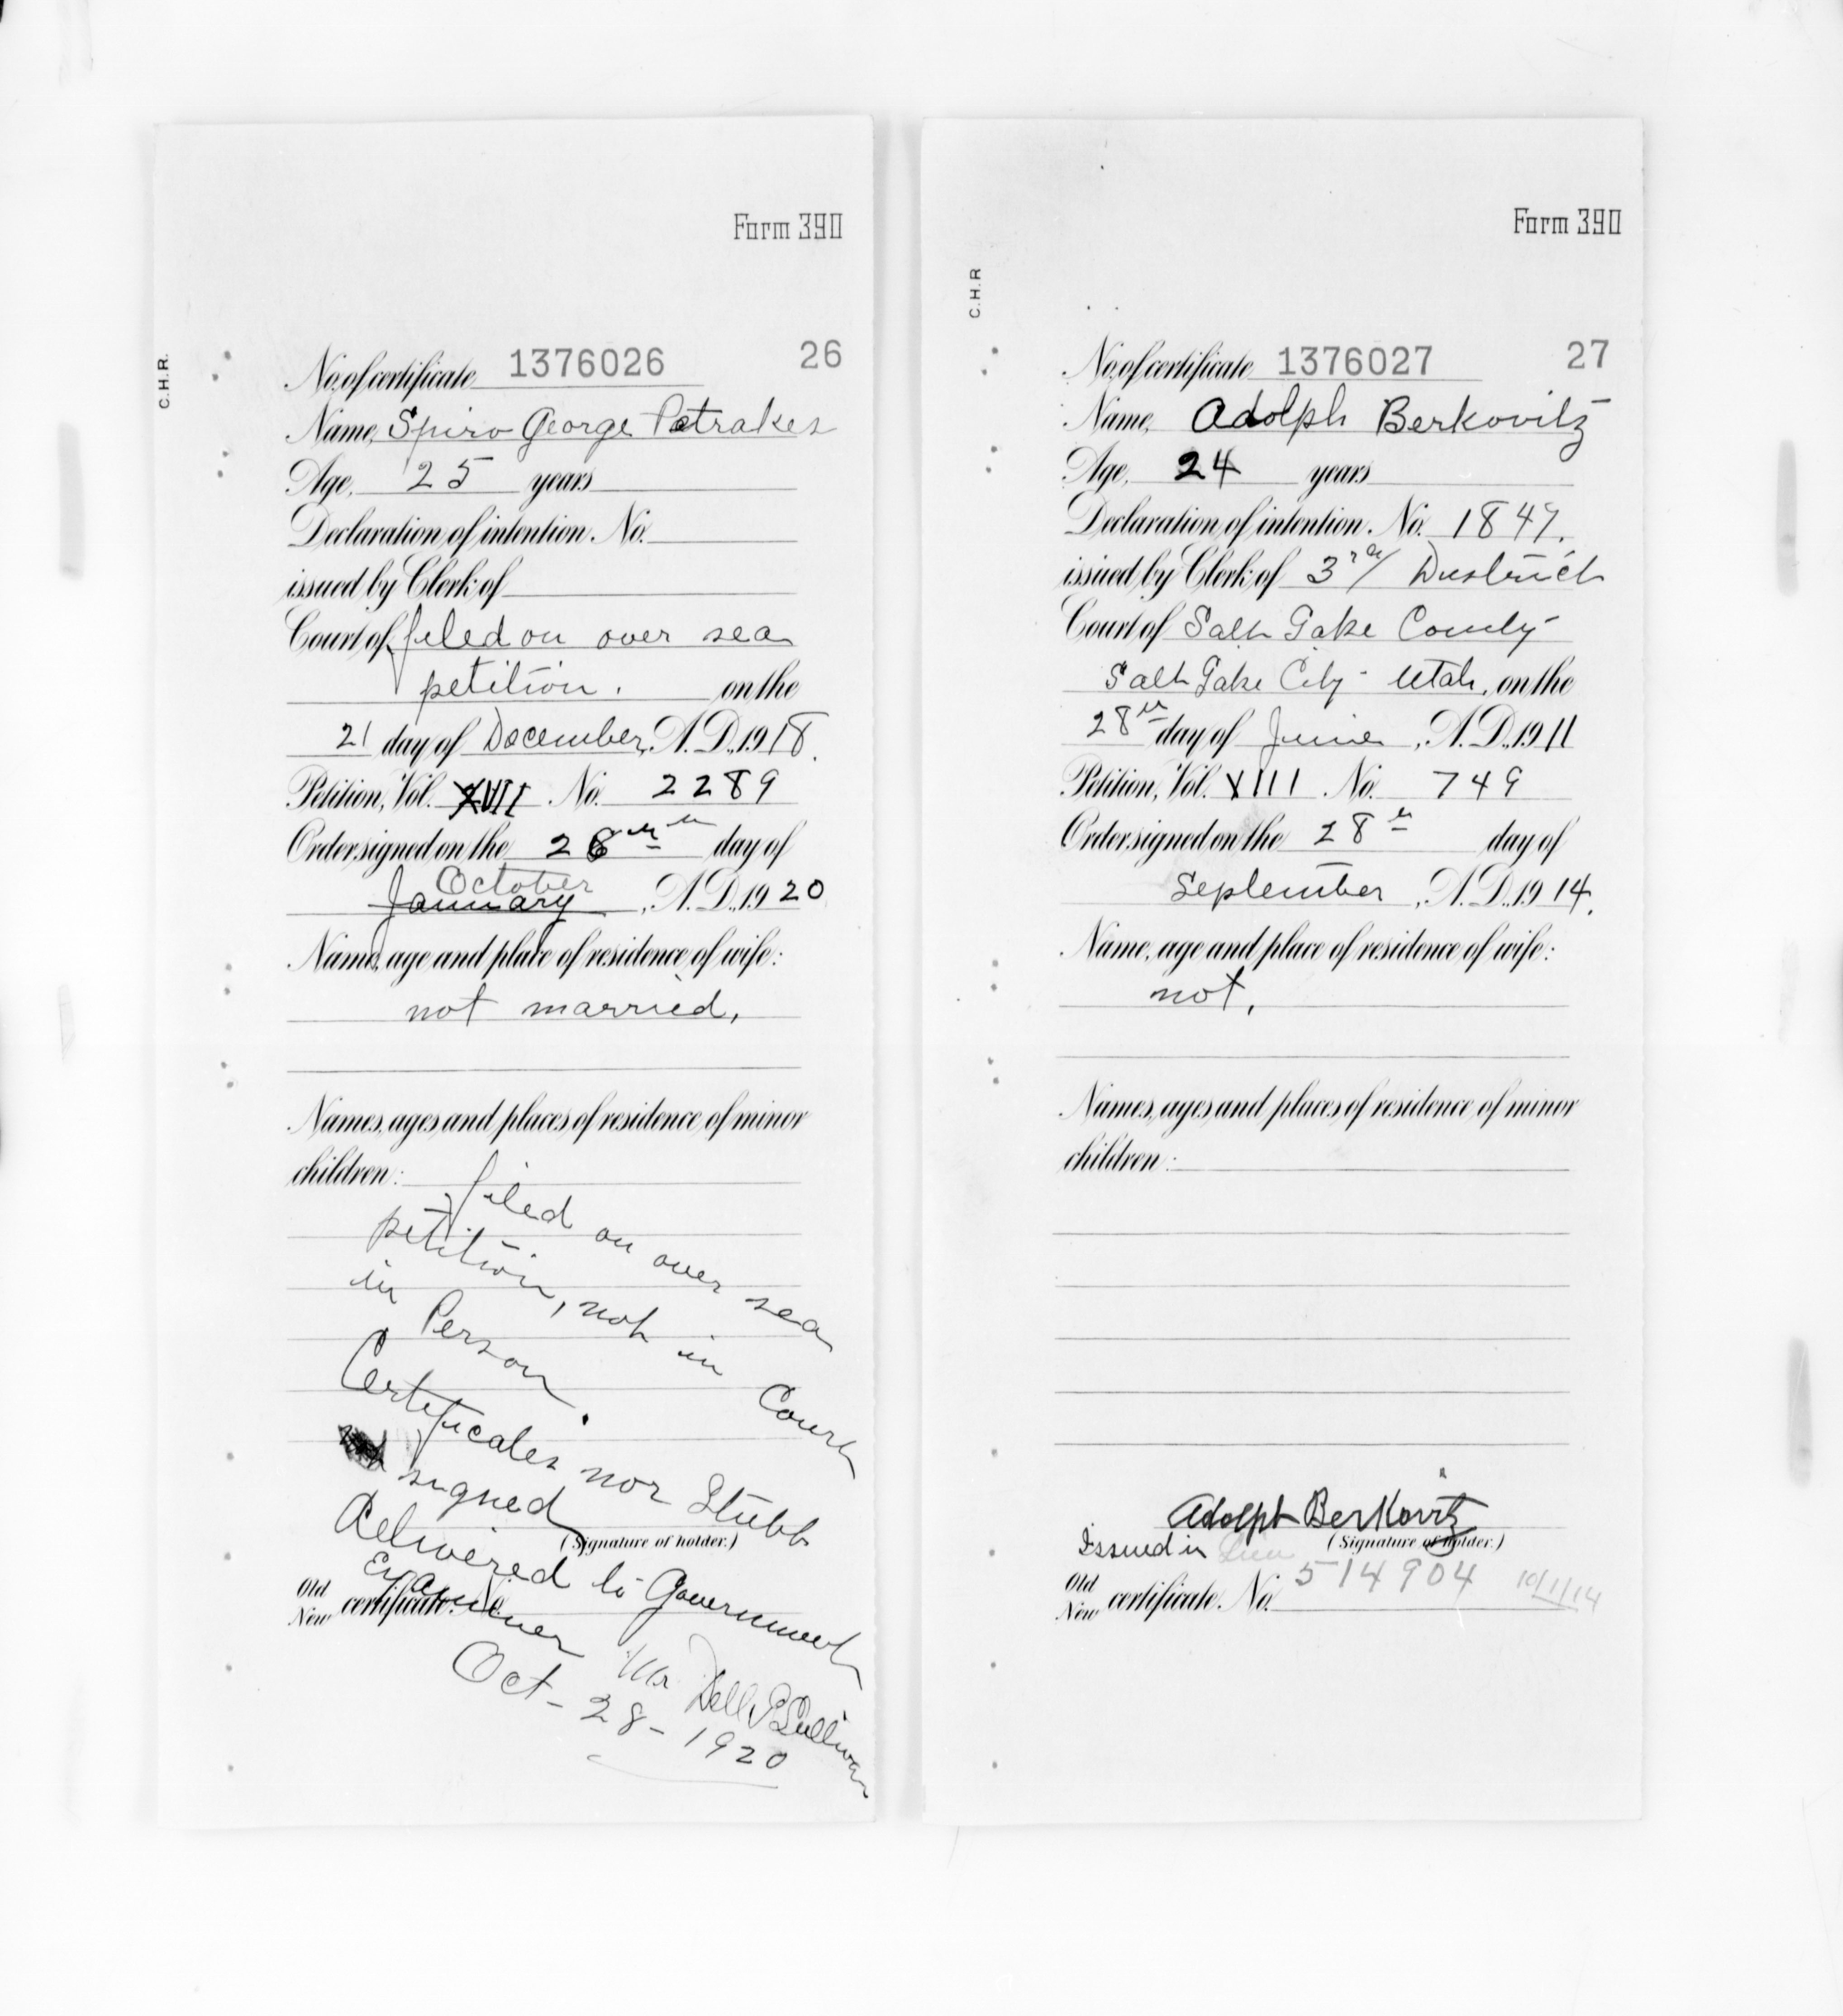 Form 390
C.H.R.
No. of certificate 1376026 26
Name, Spiro George Petrakes
Age, 25 years
Declaration of intention. No.
issued by Clerk of
Court of filed on over sea
petition. on the
21 day of December, A.D., 1918.
Petition, Vol. XVII No. 2289
Order signed on the 28th day of
October
January, A.D., 1920
Name, age and place of residence of wife:
not married,
Names, ages and places of residence of minor
children:
filed on over sea
petition, not in Court
in Person.
Certificates nor Stubb
signed
Delivered to Government
Examiner Mr Dell P Sullivan
Oct - 28 - 1920
(Signature of holder.)
Old
New certificate. No.
Form 390
C.H.R
No. of certificate 1376027 27
Name, Adolph Berkovitz
Age, 24 years
Declaration of intention. No. 1847.
issued by Clerk of 3rd District
Court of Salt Lake County
Salt Lake City - Utah, on the
28th day of June, A.D., 1911
Petition, Vol. XIII No. 749
Order signed on the 28th day of
September, A.D., 1914.
Name, age and place of residence of wife:
not.
Names, ages and places of residence of minor
children:
Adolph Berkovitz
Issued in (Signature of holder.)
Old
New certificate. No. 514904 10/1/14